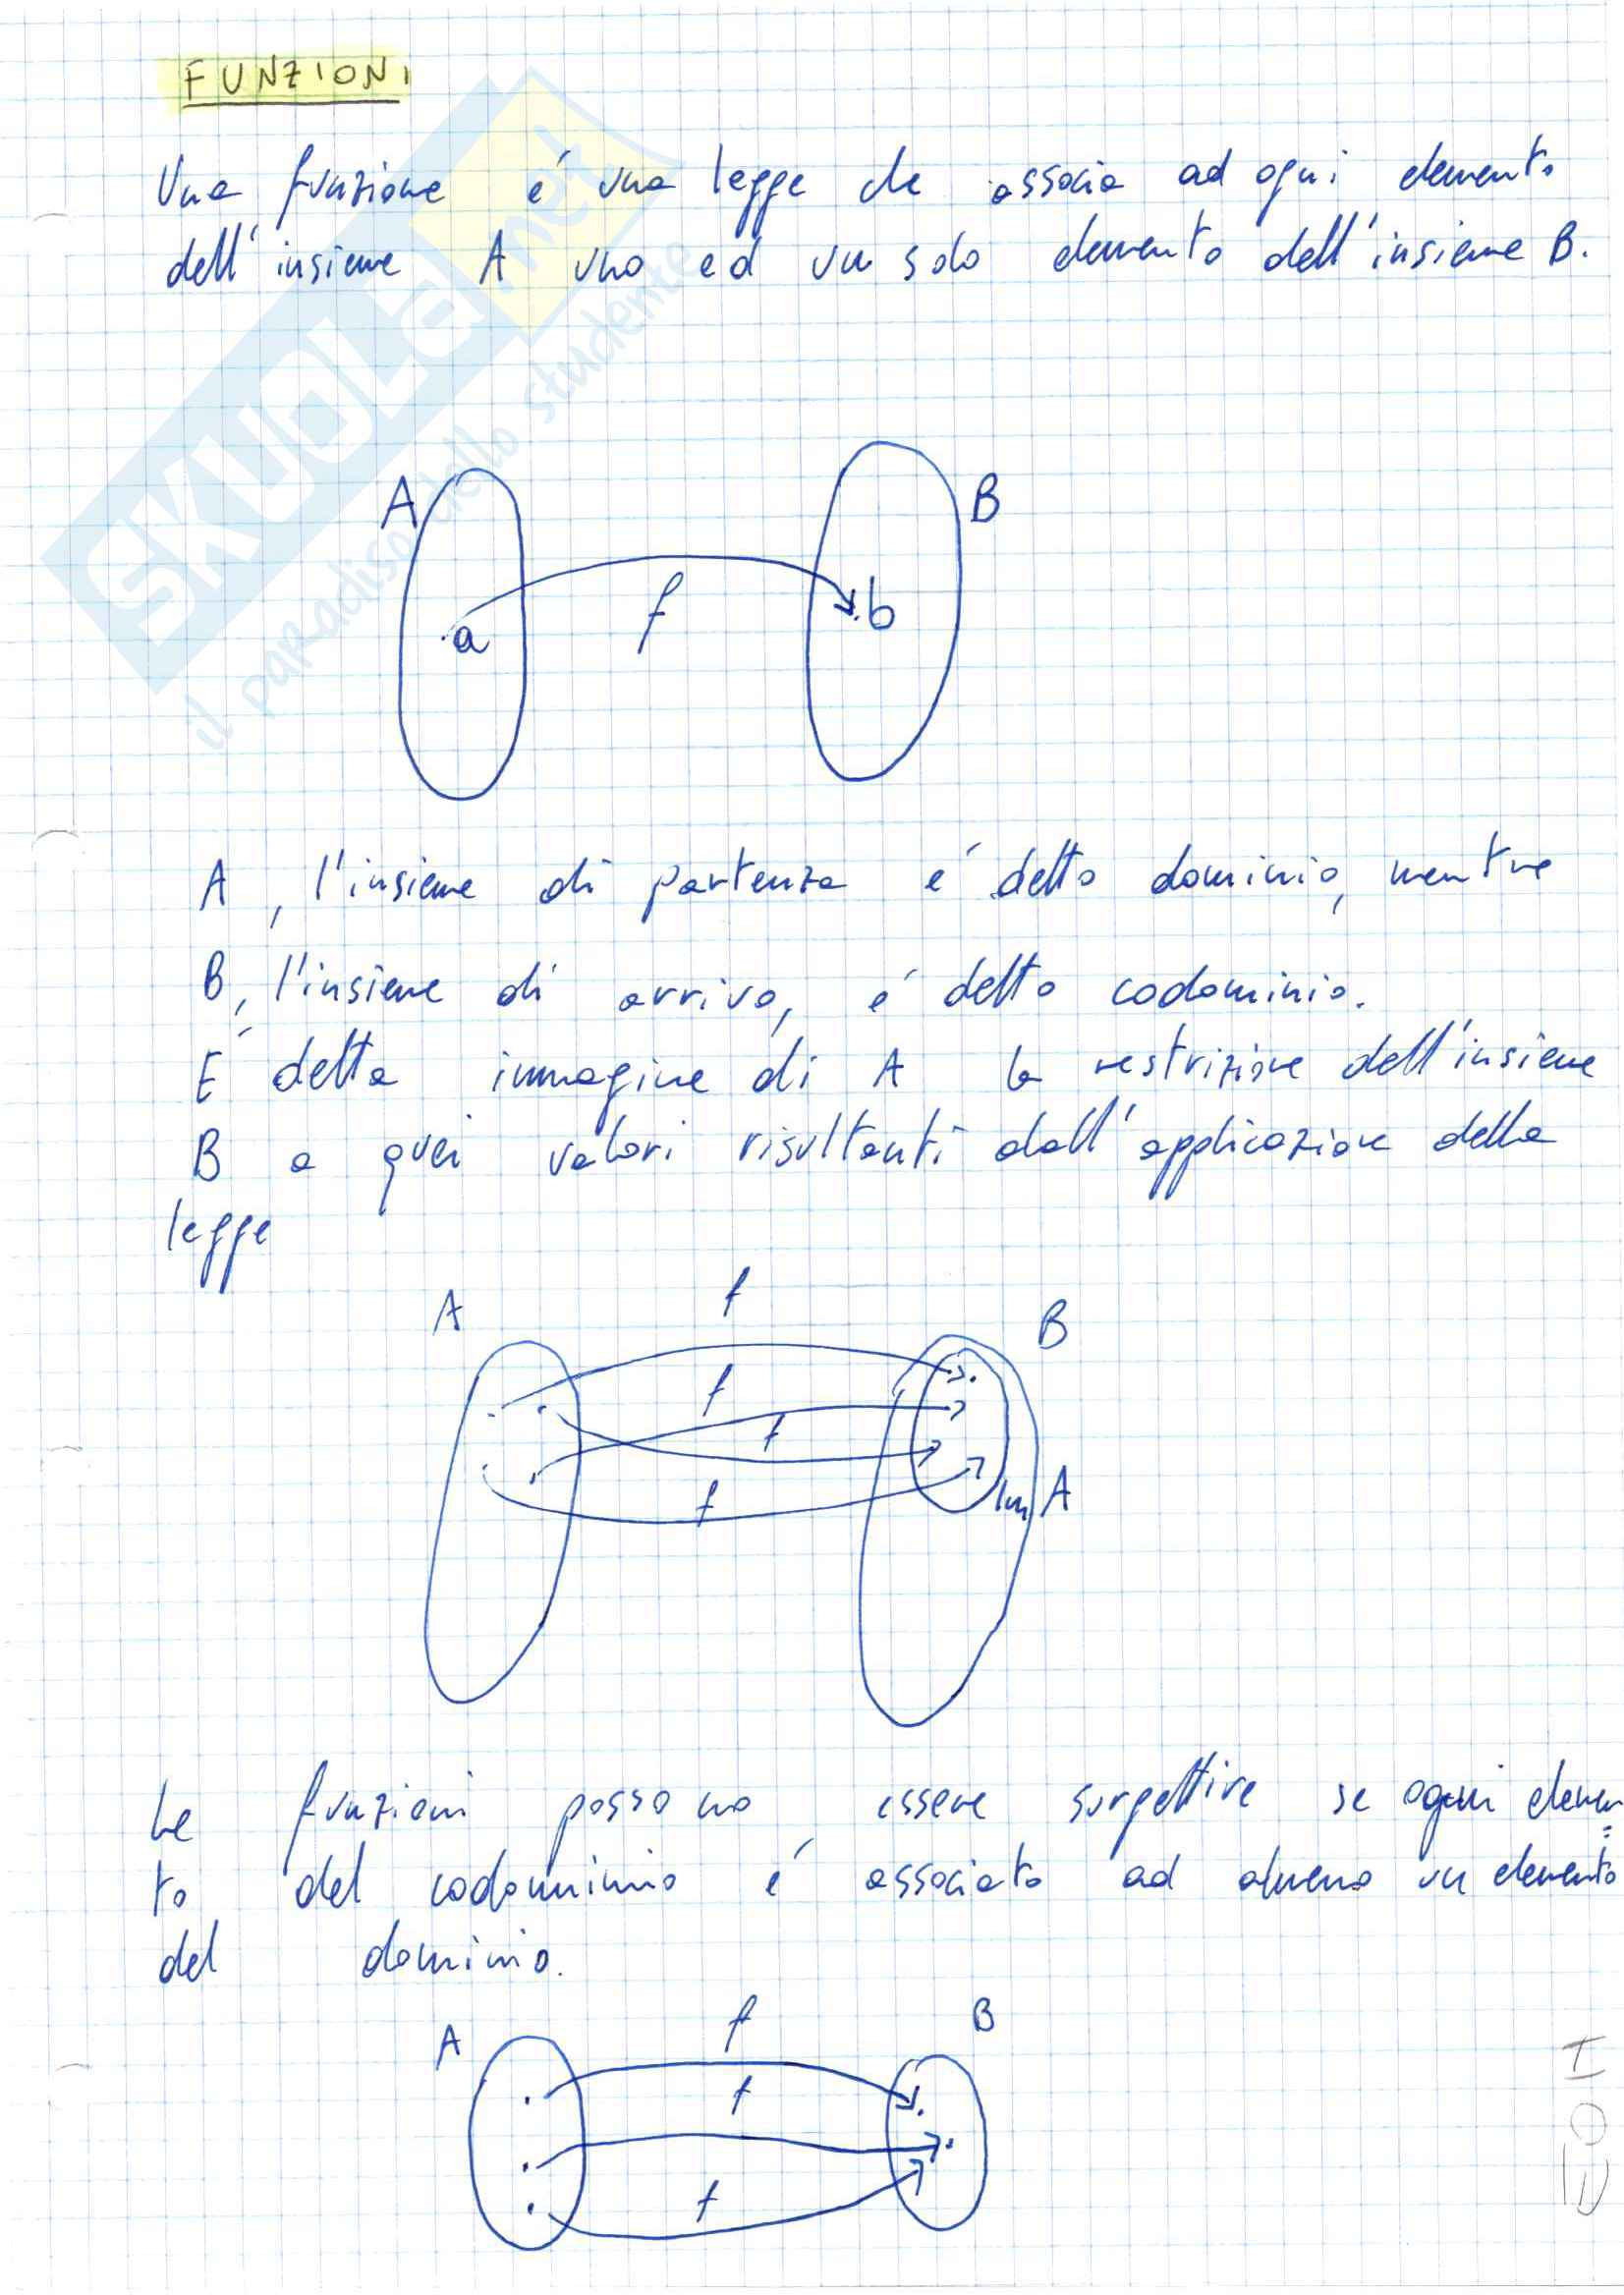 FUNZIONI
Una funzione é una legge che associa ad ogni elemento
dell'insieme A uno ed un solo elemento dell'insieme B.
A
B
f
.a
.b
A, l'insieme di partenza é detto dominio, mentre
B, l'insieme di arrivo, é detto codominio.
É detta immagine di A la restrizione dell'insieme
B a quei valori risultanti dall'applicazione della
legge
f
A
B
f
f
f
Im A
Le funzioni possono essere surgettive se ogni elemen
to del codominio é associato ad almeno un elemento
del dominio.
f
A
B
f
f
SKUOLA.net
il paradiso dello studente